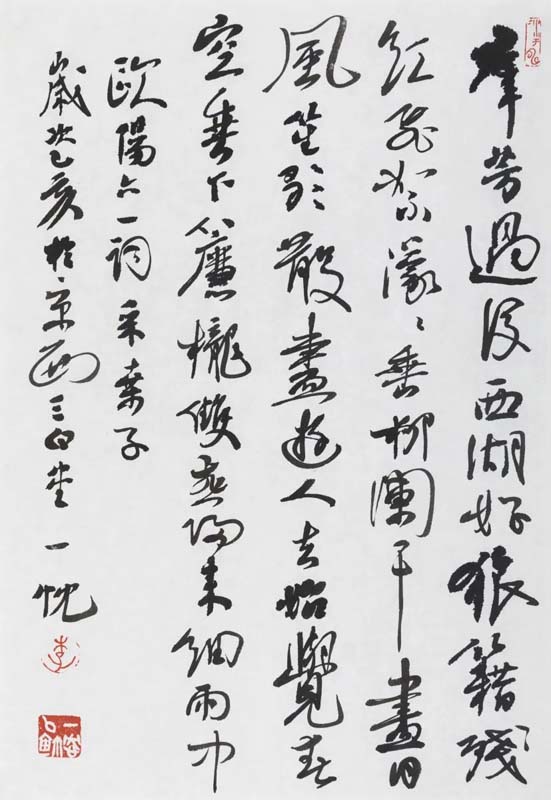 羣芳過後西湖好狼籍殘
紅飛絮濛〻垂柳闌干盡日
風笙歌散盡遊人去始覺春
空垂下簾櫳雙燕歸來細雨中
歐陽六一詞采桑子
歲次乙亥於京西三白堂一忱
李